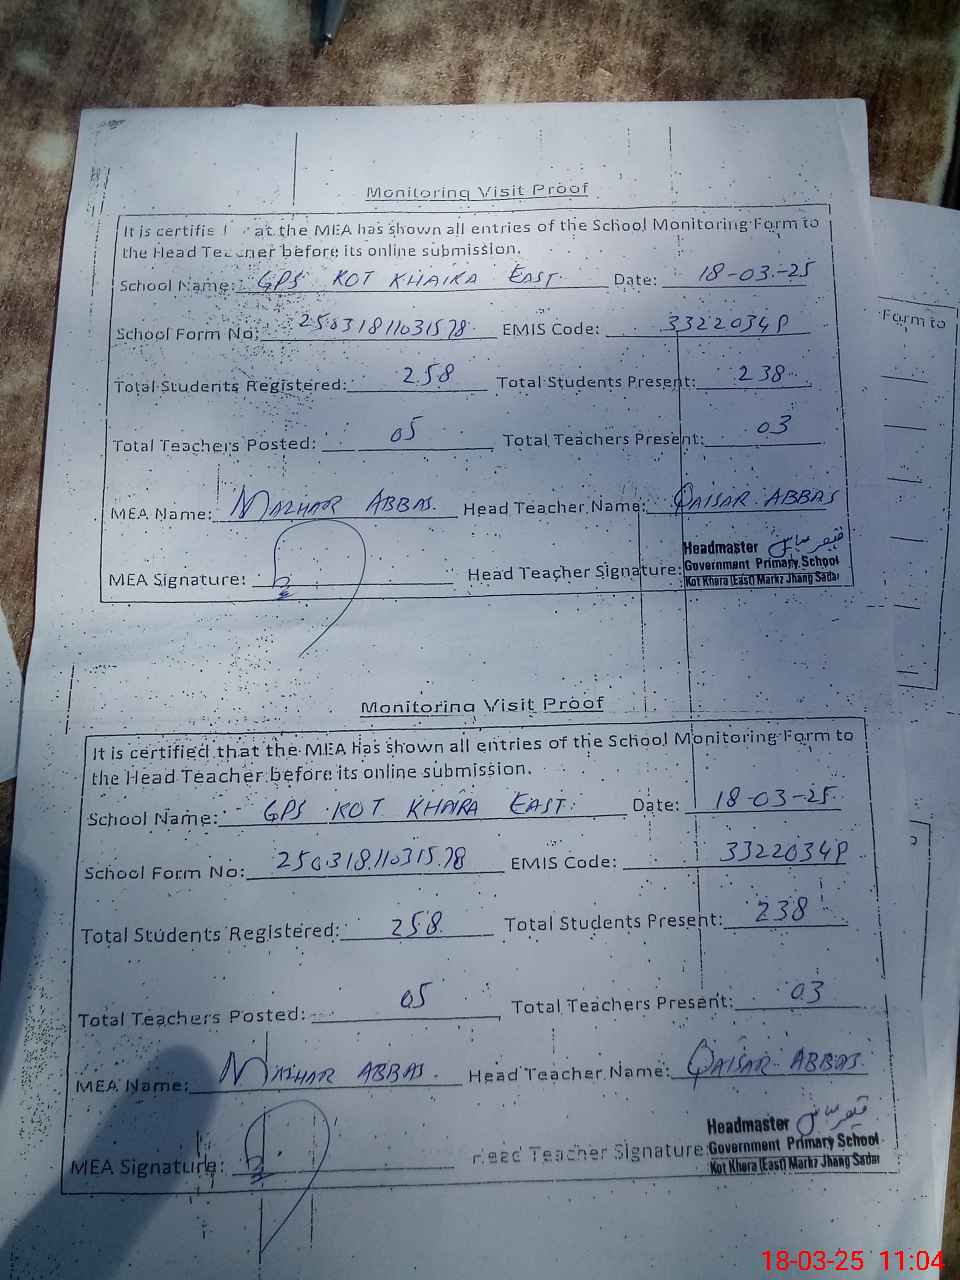 Monitoring Visit Proof
It is certifie at the MEA has shown all entries of the School Monitoring Form to
the Head Teacher before its online submission.
School Name: GPS KOT KHAIRA EAST. Date: 18-03-25
School Form No: 25031811031578 EMIS Code: 33220348
Total Students Registered: 258 Total Students Present: 238
Total Teachers Posted: 05 Total Teachers Present: 03
MEA Name: MAZHAR ABBAS. Head Teacher Name: QAISAR ABBAS
Headmaster
MEA Signature: Head Teacher Signature: Government Primary School
Kot Khera (East) Markz Jhang Sadar
Monitoring Visit Proof
It is certified that the MEA has shown all entries of the School Monitoring Form to
the Head Teacher before its online submission.
School Name: GPS KOT KHAIRA EAST. Date: 18-03-25
School Form No: 25031811031578 EMIS Code: 33220348
Total Students Registered: 258 Total Students Present: 238
Total Teachers Posted: 05 Total Teachers Present: 03
MEA Name: MAZHAR ABBAS. Head Teacher Name: QAISAR ABBAS.
Headmaster
MEA Signature: Head Teacher Signature: Government Primary School
Kot Khera (East) Markz Jhang Sadar
Form to
18-03-25 11:04